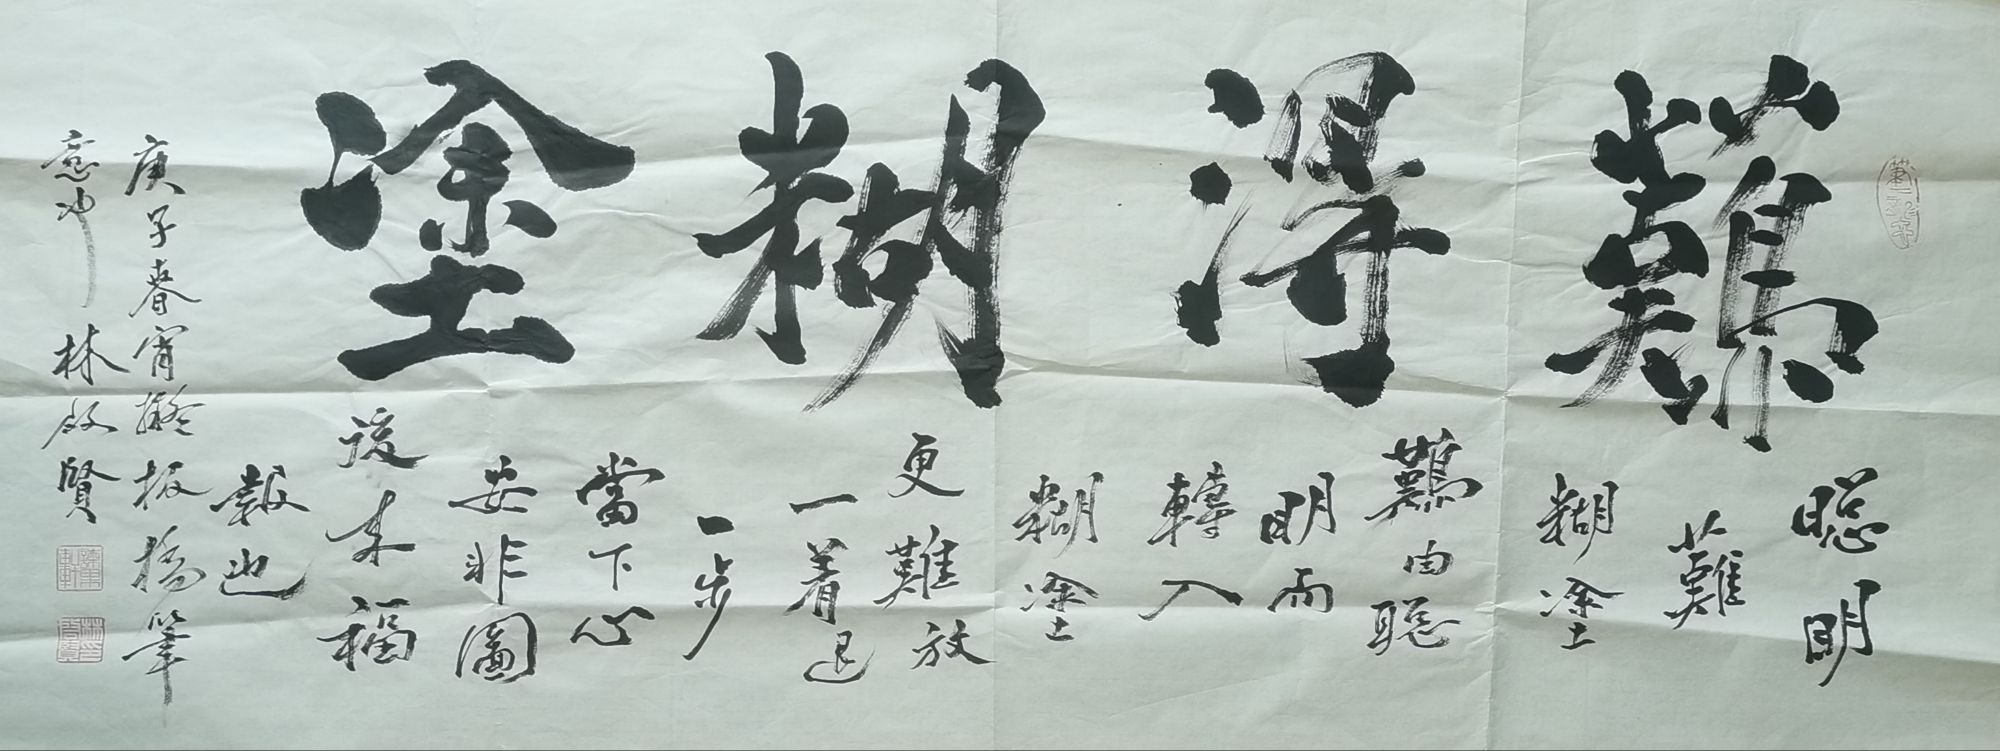 難得糊塗
聰明
難
糊塗
難由聰
明而
轉入
糊塗
更難放
一着退
一步
當下心
安非圖
後来福
報也
庚子春宵擬板橋筆
意 林啟賢